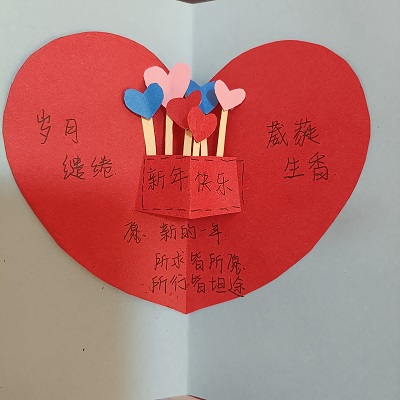 岁月
缱绻
葳蕤
生香
新年快乐
愿 新的一年
所求皆所愿
所行皆坦途